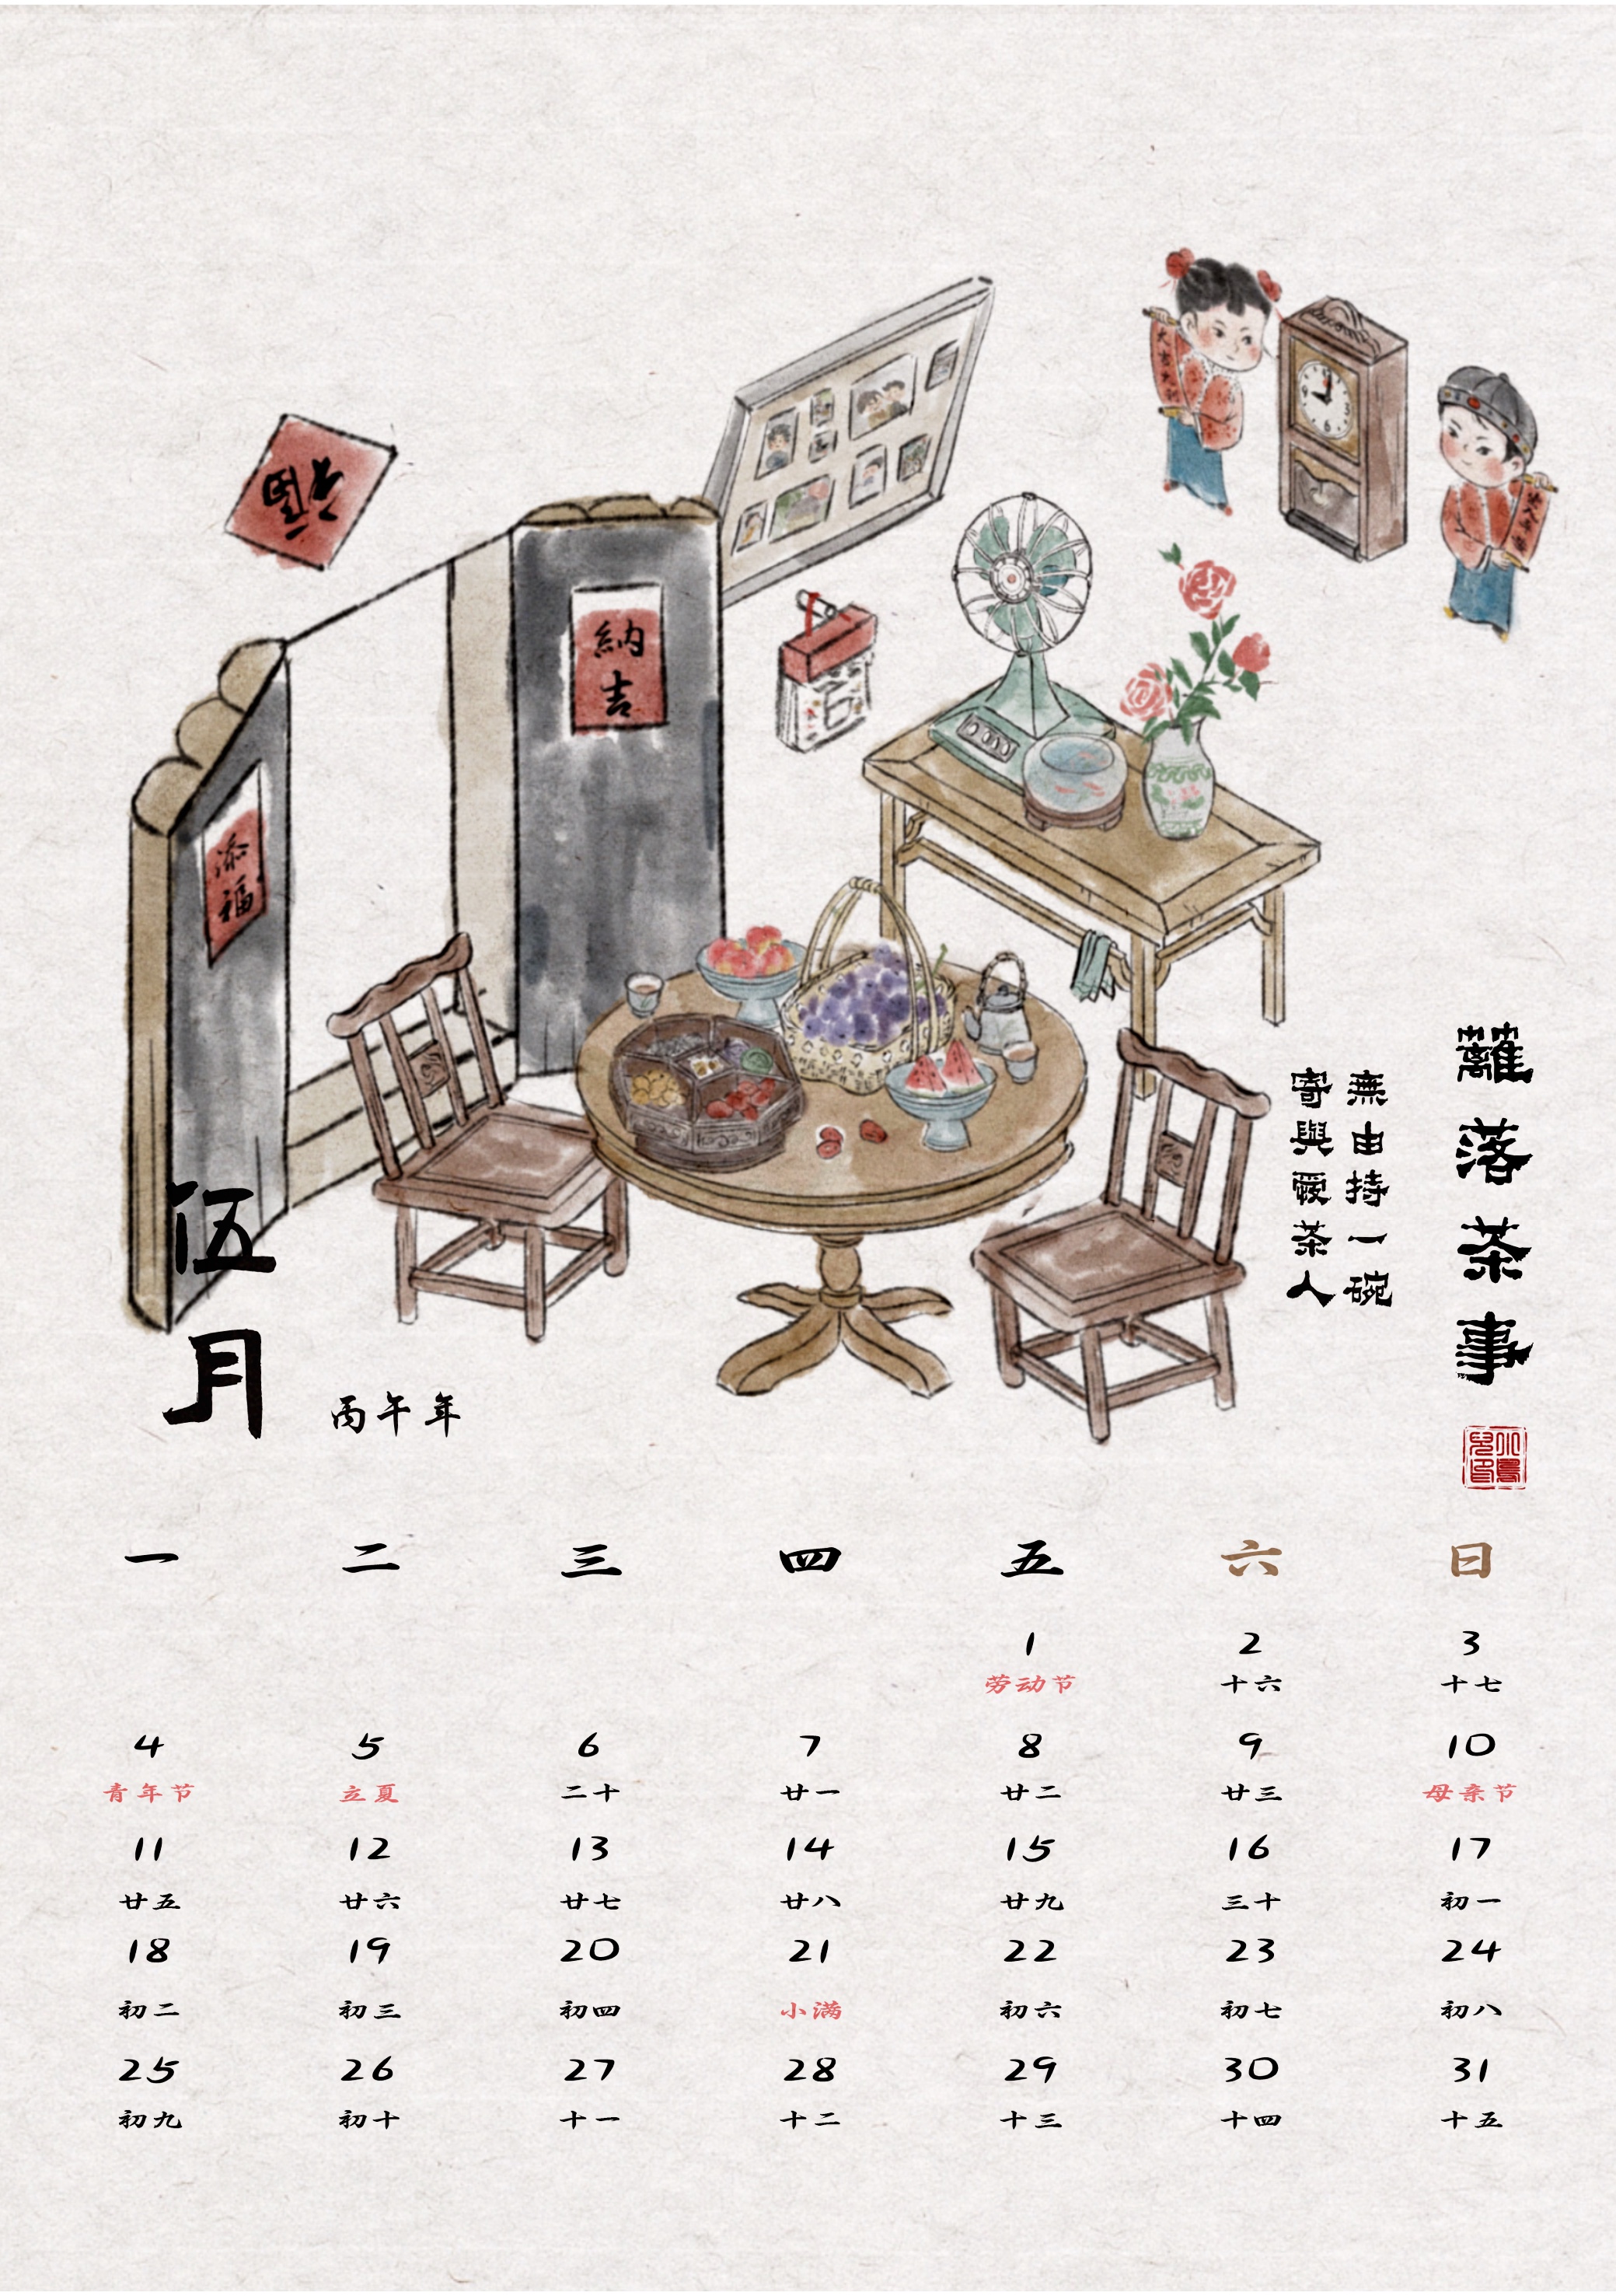 福
納吉
添福
大吉大利
蘺落茶事
無由持一碗
寄與愛茶人
伍月
丙午年
一 二 三 四 五 六 日
1 2 3
劳动节 十六 十七
4 5 6 7 8 9 10
青年节 立夏 二十 廿一 廿二 廿三 母亲节
11 12 13 14 15 16 17
廿五 廿六 廿七 廿八 廿九 三十 初一
18 19 20 21 22 23 24
初二 初三 初四 小满 初六 初七 初八
25 26 27 28 29 30 31
初九 初十 十一 十二 十三 十四 十五